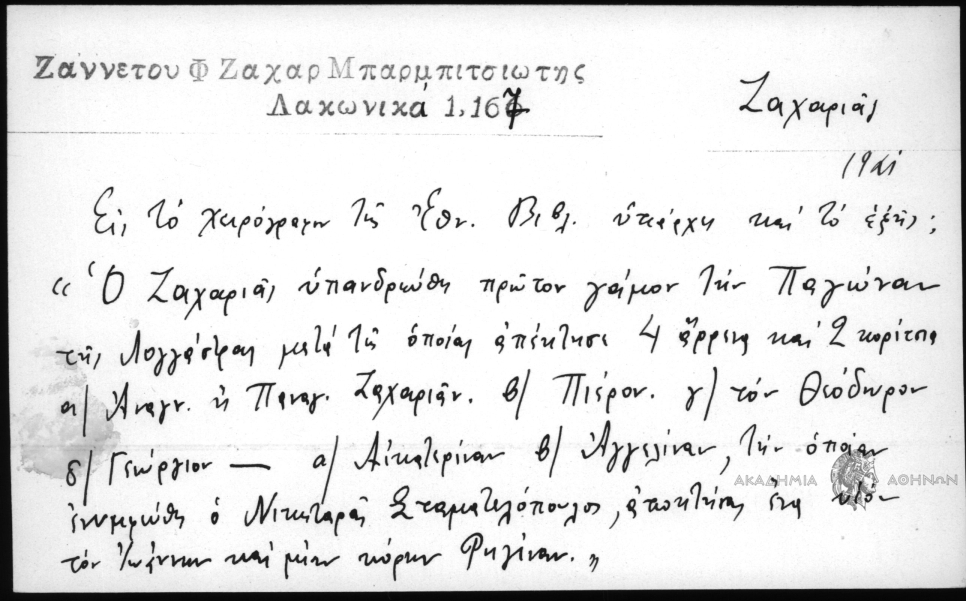 Ζαννετου Φ Ζαχαρ Μπαρμπιτσιωτης
Λακωνικά 1,167
Ζαχαριᾶς
1921
Εἰς τό χειρόγραφον τῆς Ἐθν. Βιβλ. ὑπάρχει καί τό ἑξῆς:
« Ὁ Ζαχαριᾶς ὑπανδρεύθη πρῶτον γάμον τήν Παγώναν
τῆς Λογγάστρας μετά τῆς ὁποίας ἀπέκτησε 4 ἄρρενα καί 2 κορίτσια
α/ Ἀναγν. ἤ Παναγ. Ζαχαριᾶν. β/ Πιέρον. γ/ τόν Θεόδωρον
δ/ Γεώργιον — α/ Αἰκατερίναν β/ Ἀγγελίναν, τήν ὁποίαν
ἐνυμφεύθη ὁ Νικηταρᾶς Σταματελόπουλος, ἀποκτήσας ἕνα υἱόν
τόν Ἰωάννην καί μίαν κόρην Ρηγίναν. »
ΑΚΑΔΗΜΙΑ ΑΘΗΝΩΝ